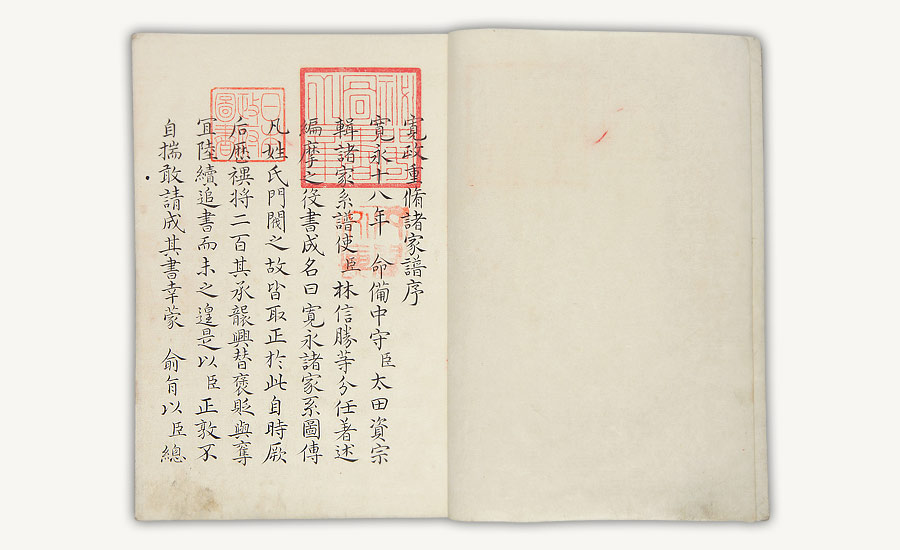 寛政重脩諸家譜序
寛永十八年 命備中守臣太田資宗
輯諸家系譜使臣林信勝等分任著述
編摩之役書成名曰寛永諸家系圖傳
凡姓氏門閥之故皆取正於此自時厥
后歴禩将二百其承襲興替褒貶與奪
宜陸續追書而未之遑是以臣正敦不
自揣敢請成其書幸蒙 俞旨以臣總
日本
政府
圖書